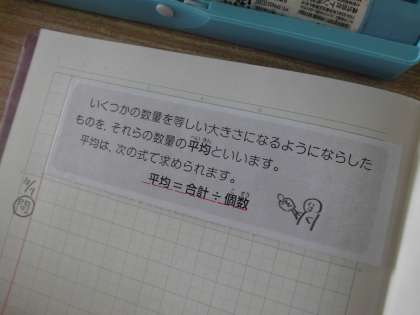 いくつかの数量を等しい大きさになるようにならした
ものを、それらの数量の平均といいます。
平均は、次の式で求められます。
平均＝合計÷個数